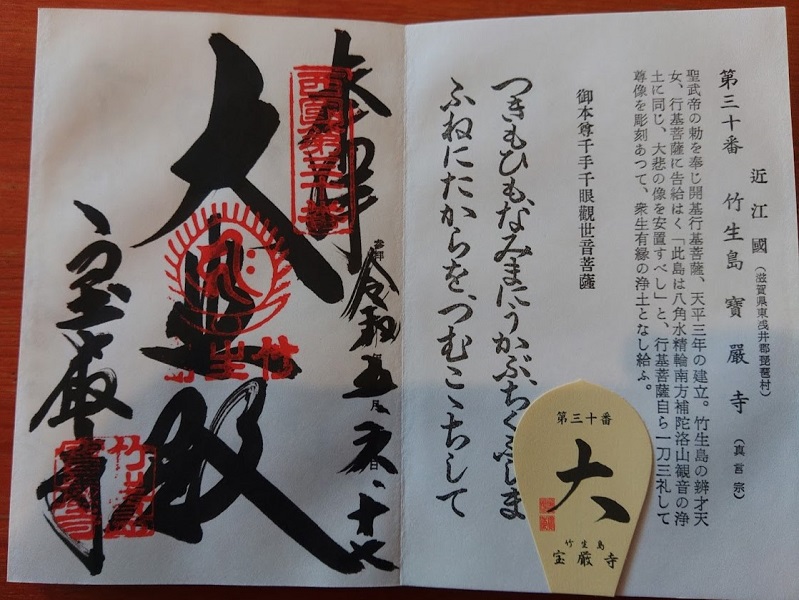 近江國（滋賀県東浅井郡琵琶村）
第三十番 竹生島 寶嚴寺（真言宗）
聖武帝の勅を奉じ開基行基菩薩、天平三年の建立。竹生島の辨才天
女、行基菩薩に告給はく「此島は八角水精輪南方補陀洛山観音の浄
土に同じ、大悲の像を安置すべし」と、行基菩薩自ら一刀三礼して
尊像を彫刻あつて、衆生有縁の浄土となし給ふ。
御本尊千手千眼觀世音菩薩
つきもひも、なみまにうかぶ、ちくぶしま
ふねにたからを、つむこゝちして
第三十番
大
竹生島
宝厳寺
奉拝
令和五、六、十七
西國第三十番
大悲殿
竹生島
宝厳寺